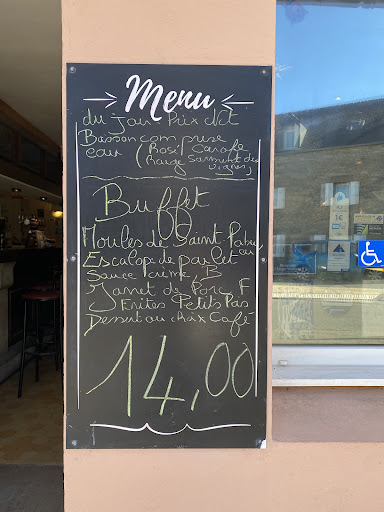 Menu
du Jour Prix Net
Boisson comprise
eau (Rosé) Carafe
Rouge Sarments des
Vignes)
Buffet
Moules de Saint Pabu
Escalope de poulet
Sauce crème
Jarret de Porc F
Frites Petits Pois
Dessert au choix Café
14,00